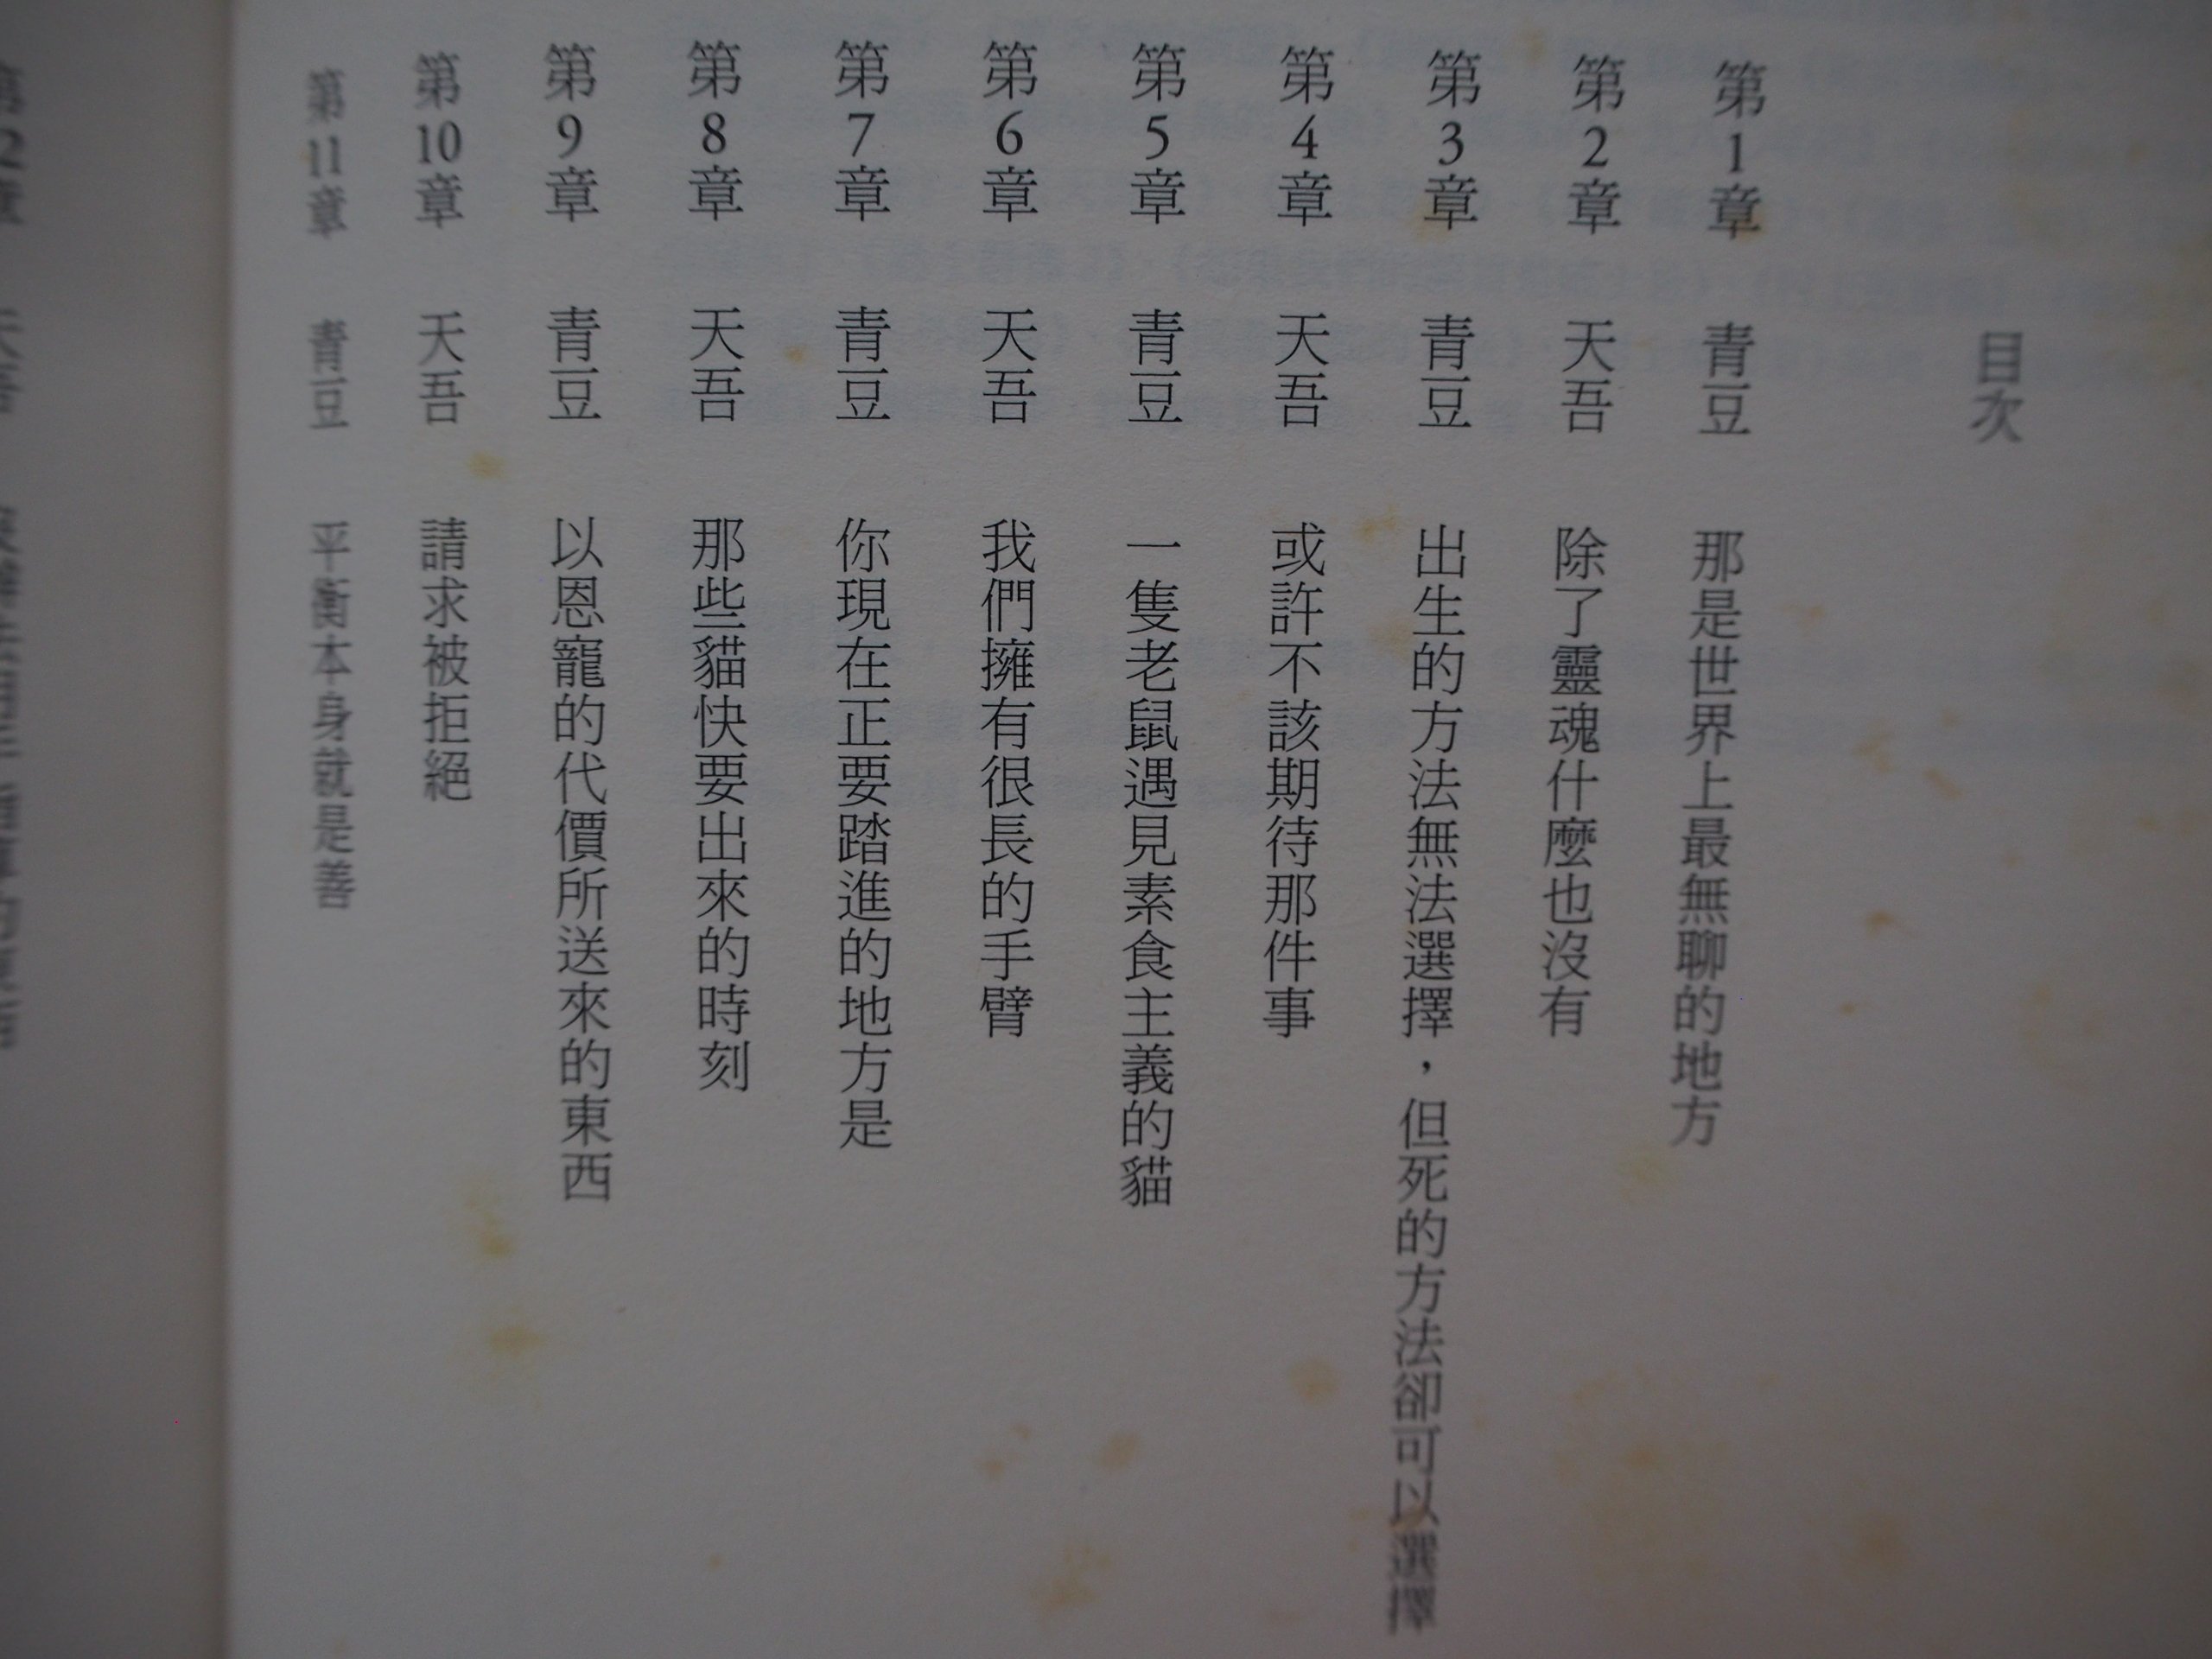 目次
第1章 青豆 那是世界上最無聊的地方
第2章 天吾 除了靈魂什麼也沒有
第3章 青豆 出生的方法無法選擇，但死的方法卻可以選擇
第4章 天吾 或許不該期待那件事
第5章 青豆 一隻老鼠遇見素食主義的貓
第6章 天吾 我們擁有很長的手臂
第7章 青豆 你現在正要踏進的地方是
第8章 天吾 那些貓快要出來的時刻
第9章 青豆 以恩寵的代價所送來的東西
第10章 天吾 請求被拒絕
第11章 青豆 平衡本身就是善